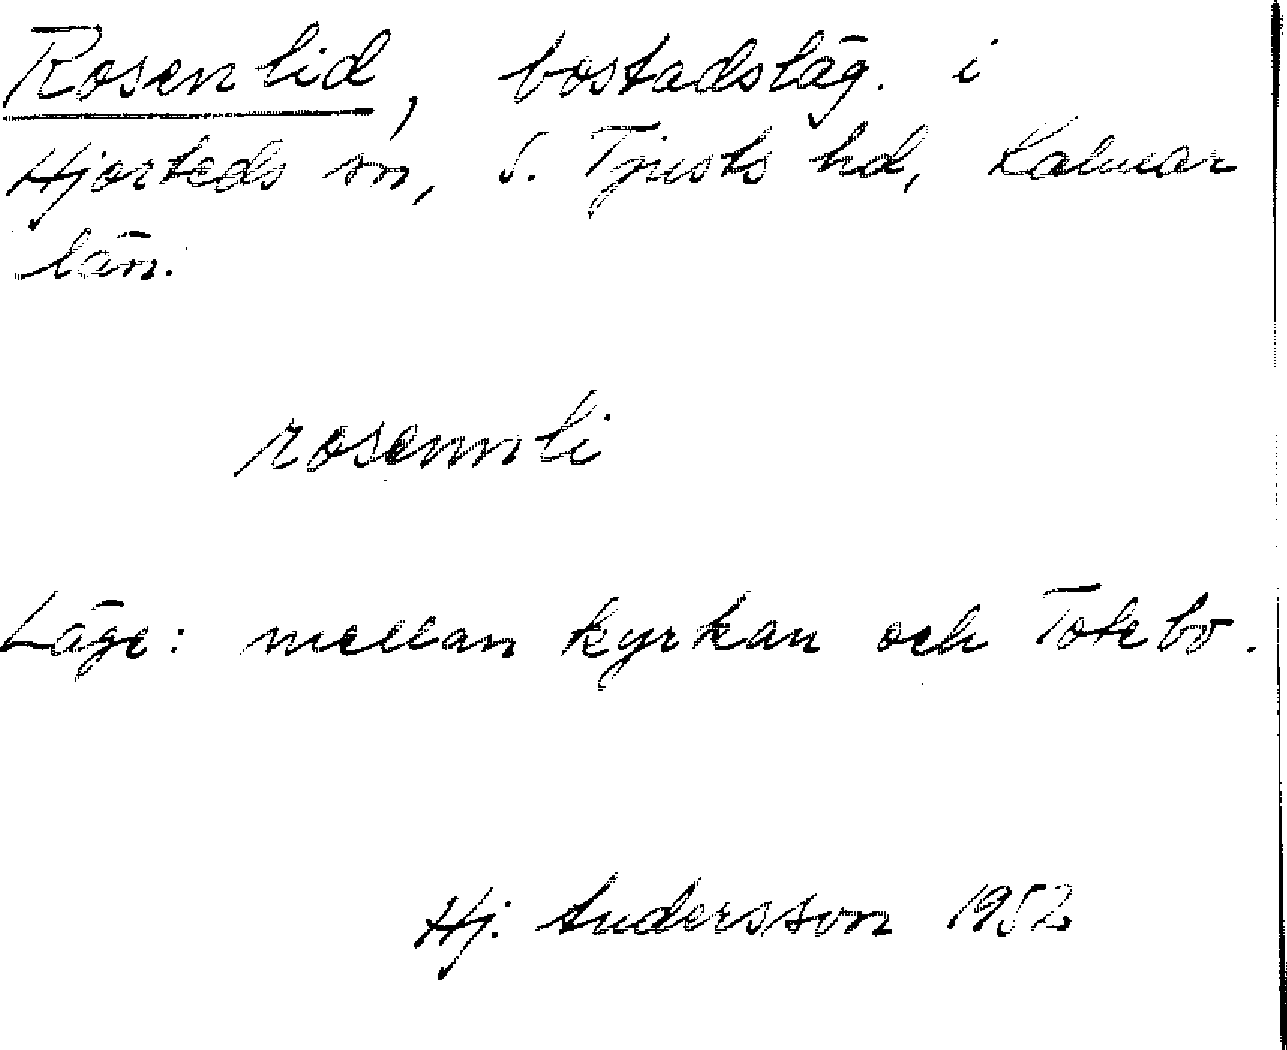 Rosenlid, bostadsläg. i
Hjorteds sn, S. Tjusts hd, Kalmar
län.
rosennli
Läge: mellan kyrkan och Totebo.
Hj. Andersson 1952